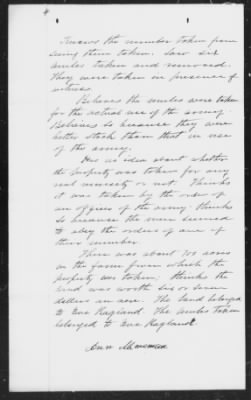 4
Knows the number taken from
seeing them taken. Saw six
mules taken and removed.
They were taken in presence of
witness.
Believes the mules were taken
for the actual use of the army.
Believes so because they were
better stock than that in use
of the army.
Has no idea about whether
the property was taken for any
real necessity or not. Thinks
it was taken by the order of
an officer of the army, thinks
so because the men seemed
to obey the orders of one of
their number.
There was about 700 acres
in the farm from which the
property was taken, thinks the
land was worth six or seven
dollars an acre. The land belonged
to Eva Ragland. The mules taken
belonged to Eva Ragland.
Ann